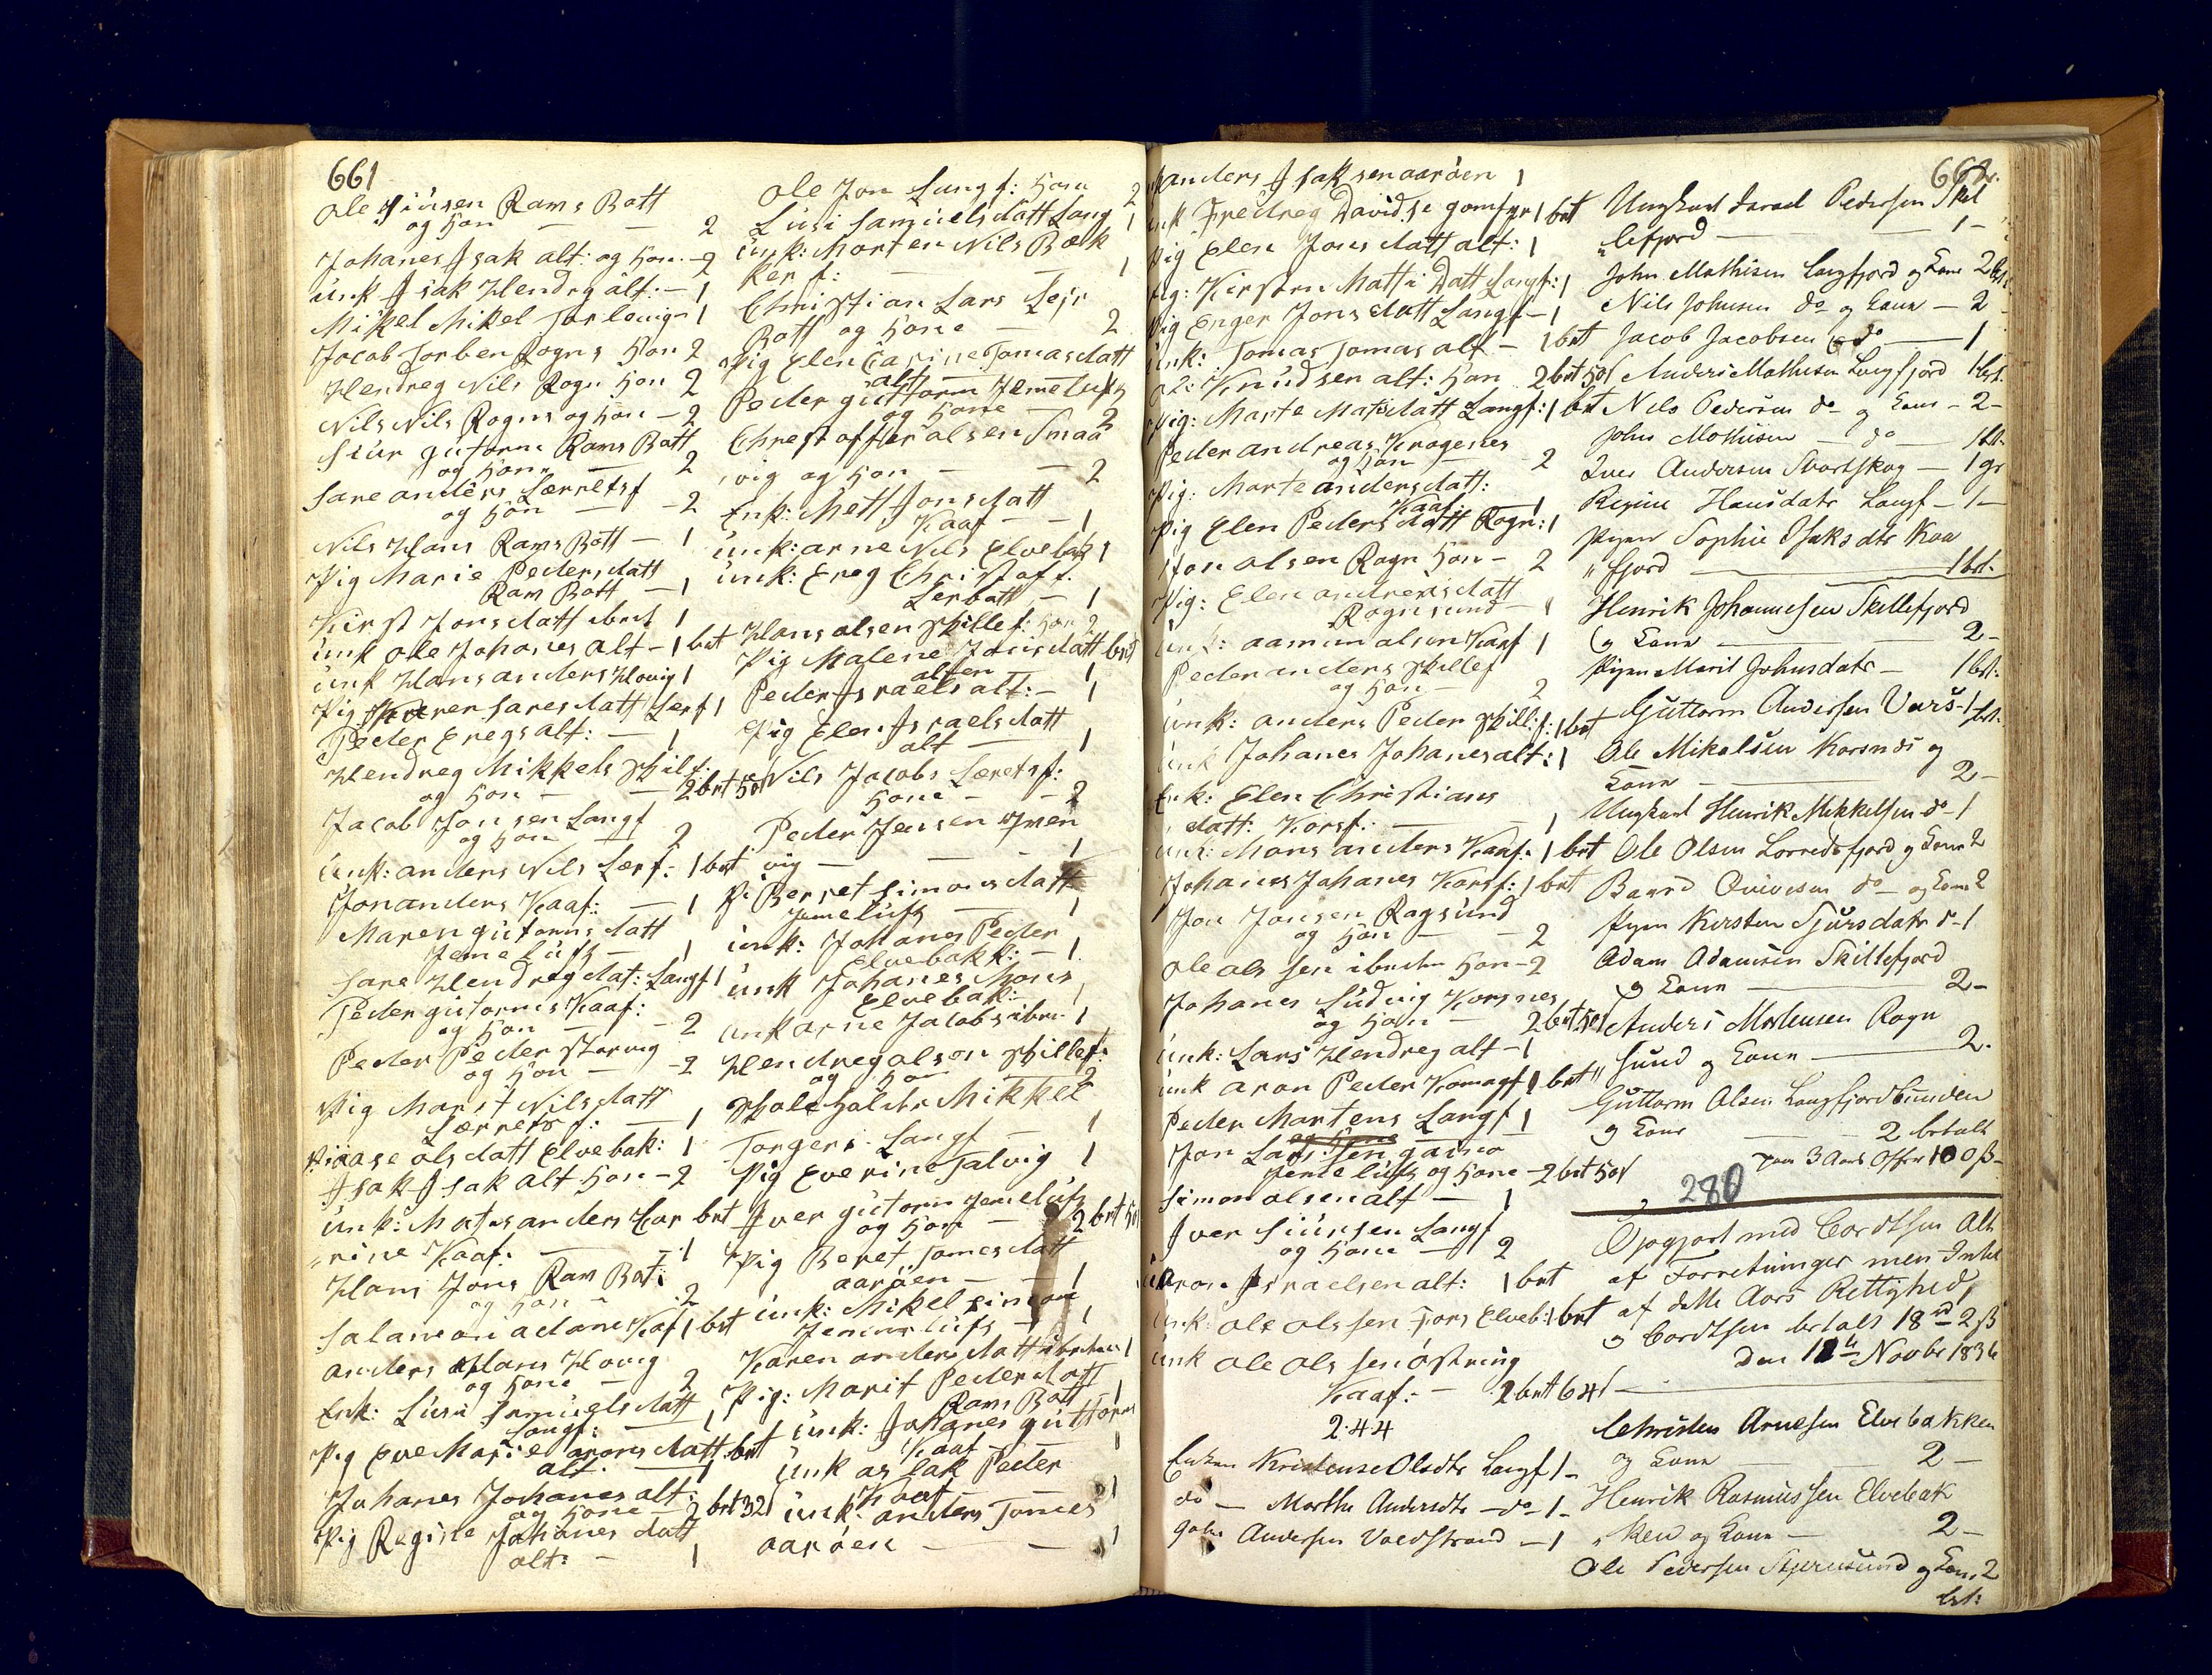 661
Ole Siúrsen Rams Bott
og Hon — — 2
Johanes Isak alt: og Hon - 2
ûnk Isak Hendrg alt: - 1
Mikel Mikel Torlovig - 1
Jacob Torben Rogns Hon 2
Hendreg Nils Rogn Hon 2
Nils Nils Rogns og Hon - 2
Siúr gútorm Rams Bott
og Hon — 2
Sare anders Lærretsf
og Hon — - 2
Nils Hans Rams Bott - 1
Pig Marie Peders datt
Ram Bott — 1
Kirst Jons datt ibmt 1
ûnk Ole Johanes Alt - 1 brt
ûnk Hans anders Hovig 1
Pig Karen Sares datt Lerf 1
Peder Eregs alt: — 1
Hendreg Mikkels Skilf:
og Hon — — 2 brt 501
Jacob Jonsen Langf
og Hon 2
ûnk: anders Nils Lerf: 1 brt
Jon anders Kaaf: — 1
Maren gútorms datt
Jemelúft — 1
Sare Hendreg dat: Langf 1
Peder gútorms Kaaf:
og Hon — - 2
Peder Peder Storvig
og Hon — - 2
Pig Marit Nils datt
Lærretsf: — 1
Pi aase ols datt Elvebak: 1
Isak Isak alt Hon - 2
ûnk: Mates anders Kar brt
rine Kaaf: — 1
Hans Jons Ram Bott:
og Hon — 2
Salamon adams Kaf 1 brt
anders Hans Hovig
og Hone — 2
Enk: Lusi Samúels datt
Langf: — 1
Pig Eve Marie arons datt: brt
alt: — 1
Johanes Johanes alt:
og Hone — 2 brt 321
Pig Regine Johanes datt
alt: — 1
Ole Jon Langf: Hon 2
Lúsi Samúels datt Lang 1
ûnk: Morten Nils Bæk
ker f: — — 1
Christian Lars Lejr
Bott og Hone — 2
Pig Elen Carine Tomas datt
alt —
Peder gúttorm Jemelúft
og Hone — 2
Chrestoffer olsen Smaa
vig og Hon — — 2
Enk: Mett Jons datt
Kaaf — — 1
ûnk: arne Nils Elvebak 1
ûnk: Ereg Christoff.
Lerbott — 1
Hans olsen Skillef: Hon 2
Pig Malene Jons datt brt
alten 1
Peder Israels alt: - 1
Pig Elen Israels datt
alt — 1
Nils Jacobs Læretsf:
Hone — - 2
Peder Jensen Qven
vig — — 1
P: Berret Simons datt
Jemelúft — 1
ûnk: Johanes Peder
Elvebakk: - 1
ûnk Johanes Mons
Elvebak: 1
ûnk arne Jacobs ibm: 1
Hendreg olson Skillef:
og Ho — 2
Skoleholder Mikkel
Torgers Langf — 1
Pig Everine Talvig 1
Iver gútorm Jemelúft
og Hon — 2 brt 501
Pig Beret Tomes datt
aaröen — - 1
ûnk: Mikel Simon
Jemelúft — 1
Karen anders datt ibmt 1
Pig: Marit Peder datt
Rams Bott 1
ûnk: Johanes gúttorm
Kaaf — 1
ûnk aslak Peder
Kaaf — 1
ûnk: anders Tomes
aaröen — — 1
662.
anders Isaksen aaröen 1
ûnk Fredreg Davidse gomfyr 1 brt
Pig Elen Jons datt alt: 1
Pig: Kirsten Matti Datt Langf: 1
Pig Enger Jons datt Langf - 1
ûnk: Tomas Tomas alt - 1 brt
Ol: Knúdsen alt: Hon 2 brt 501
Pig: Marte Mats datt Langf: 1 brt
Peder andreas Kragenes
og Hon 2
Pig: Marte anders datt:
Kaaf — 1
Pig Elen Peders datt Rogn: 1
Jon olsen Rogn Hon - 2
Pig: Elen andreis datt
Rognsund - 1
ûnk: aamun olsen Kaaf 1
Peder anders Skillef
og Hon — 2
ûnk: anders Peder Skill:f: 1 brt
ûnk Johanes Johanes alt: 1
Enk: Elen Christians
datt: Korsf: — 1
ûnk: Mons anders Kaaf: 1 brt
Johanes Johanes Korsf: 1 brt
Jon Jonsen Ragsúnd
og Hon — - 2
Ole ols sen ibmtn Hon - 2
Johanes Lúdvig Korsnes
og Hon — 2 brt 501
ûnk: Lars Hendreg alt - 1
ûnk aron Peder Komagf 1 brt
Peder Martens Langf 1
Jon Lars sen gaino
Jemelúft og Hone - 2 brt 501
Simon olsen alt — 1
Iver Siúrsen Langf
og Hone — 2
aron Israelsen alt: 1 brt
ûnk: ole ols sen Fors Elveb: 1 brt
ûnk ole ols sen östning
Kaaf: - 2 brt 641
2.44
Enken Kristense Olsdtr Langf 1 -
do — Marthe Andersdtr - do - 1 -
Andersen Voldstrand - 1
Ungkarl Israel Pedersen Skil
lefjord — 1 -
John Mathisen Langfjord og Kone 2 bt.
Nils Johnsen do og Kone - 2
Jacob Jacobsen do — 1
Anders Mathisen Langfjord 1 bt.
Nils Pedersen do og Kone - 2 -
John Mathisen — do — 1 bt.
Iver Andersen Svartskog — 1 gr
Regine Hansdatr Langf - 1 -
Pigen Sophie Isaksdtr Kaa
" fjord — 1 brt.
Henrik Johannesen Skillefjord
og Kone — 2 -
Pigen Marit Johnsdatr — 1 brt.
Guttorm Andersen Vars - 1 brt.
Ole Mikalsen Korsnæs og
Kone — 2 -
Ungkarl Henrik Mikkelsen do - 1
Ole Olsen Lorredsfjord og Kone 2
Baard Qvivesen do og Kone 2
Pigen Kirsten Sjursdatr do - 1
Adam Adamsen Skillefjord
og Kone — 2 -
Anders Mortensen Rogn
" sund og Kone — 2.
Guttorm Olsen Langfjordbunden
og Kone — 2 betalt
paa 3 Aars Offer 100ß -
280
Opgjort med Cordtsen Alt
af Forretninger men Intet
af dette Aars Rettighed,
og Cordtsen betalt 18 rd 2 ß
Den 12te Novbr 1836
Christen Arnesen Elvebakken
og Kone — 2 -
Henrik Rasmussen Elvebak
" ken og Kone — 2 -
Ole Pedersen Stjernsund og Kone 2
brt: